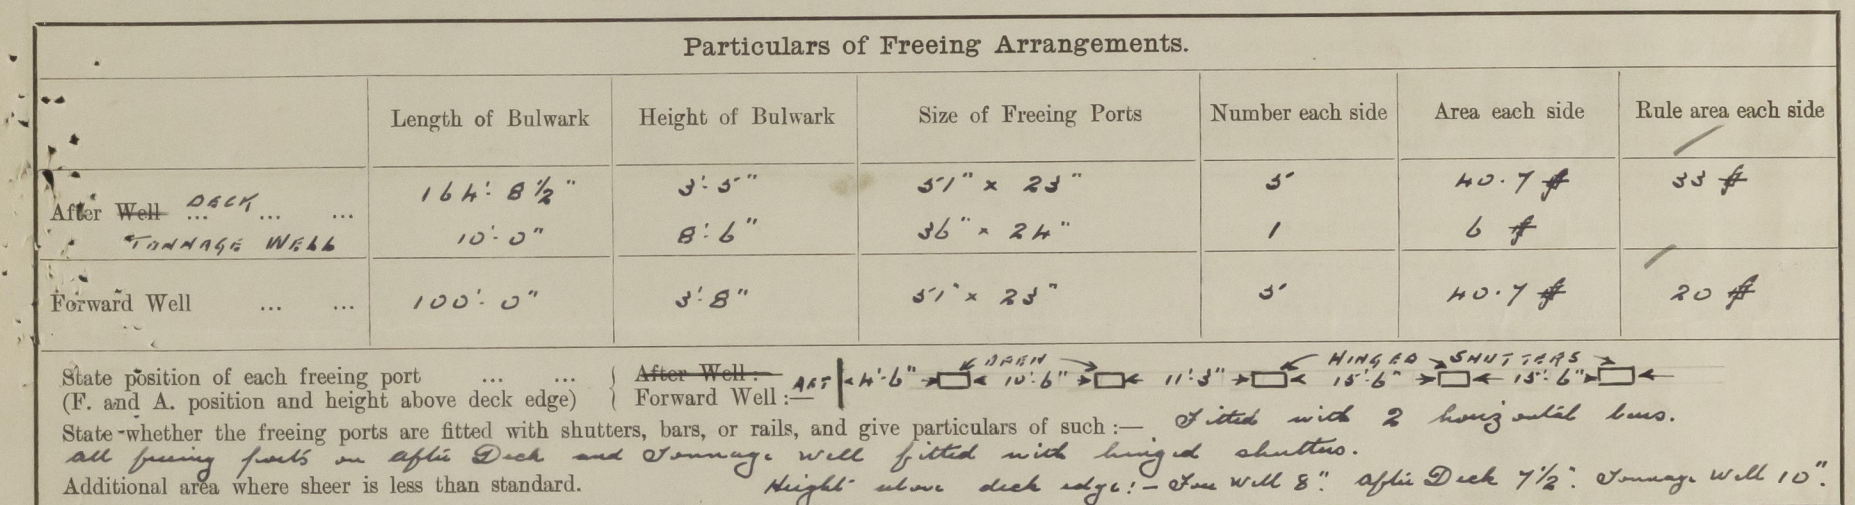 Particulars of Freeing Arrangements.
Length of Bulwark Height of Bulwark Size of Freeing Ports Number each side Area each side Rule area each side
After Well DECK ... ... ... 164'· 8½" 3'· 5" 51" × 23" 5 40·7 ft 33 ft
TONNAGE WELL 10'· 0" 8'· 6" 36" × 24" 1 6 ft
Forward Well ... ... 100'· 0" 3'· 8" 51" × 23" 5 40·7 ft 20 ft
OPEN HINGED SHUTTERS
State position of each freeing port ... ... { After Well :— AFT 4'·6" 10'·6" 11'·3" 15'·6" 15'·6"
(F. and A. position and height above deck edge) Forward Well :—
State whether the freeing ports are fitted with shutters, bars, or rails, and give particulars of such :— Fitted with 2 horizontal bars.
All freeing ports on After Deck and Tonnage Well fitted with hinged shutters.
Additional area where sheer is less than standard. Height above deck edge:— Fore Well 8". After Deck 7½". Tonnage Well 10".